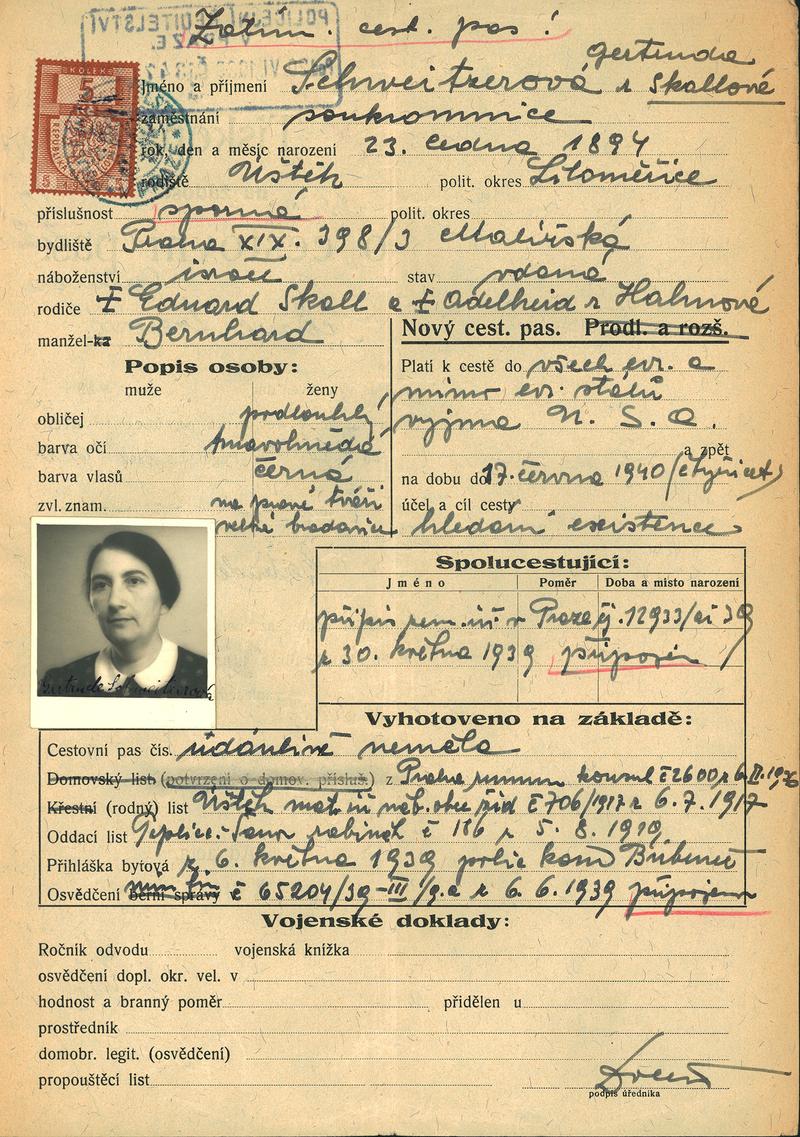 Zatím. cest. pas!
POLICEJNÍ ŘEDITELSTVÍ
V PRAZE
KOLEK
5
Gertruda
Jméno a příjmení Schweitzerová r Skallová
zaměstnání soukromnice
rok, den a měsíc narození 23. ledna 1894
rodiště Úštěk polit. okres Litoměřice
příslušnost sporná polit. okres
bydliště Praha XIX. 398/3 Malířská
náboženství israel stav vdaná
rodiče † Eduard Skall a † Adelheid r Hahnové
manžel-ka Bernhard
Nový cest. pas. Prodl. a rozš.
Popis osoby:
muže ženy
obličej podlouhlý
barva očí tmavohnědá
barva vlasů černá
zvl. znam. na pravé tváři
velká bradavice
Platí k cestě do všech evr. a
mimo evr. států
vyjma N. S. O.
a zpět
na dobu do 17. června 1940 (čtyřicet)
účel a cíl cesty
hledání existence
Gertrude Schweitzerová
Spolucestující:
Jméno Poměr Doba a místo narození
přípis zem. úř v Praze čj. 12933/ai 39
z 30. května 1939 připojen
Vyhotoveno na základě:
Cestovní pas čís. údánlivě neměla
Domovský list (potvrzení o domov. přísluš.) z Praha rumun konsul č 2600 z 6.
Křestní (rodný) list Úštěk mat. úř náb. obce žid č 706/1917 z 6. 7. 1917
Oddací list Teplice-Šanov rabinát č 116 z 5. 8. 1919
Přihláška bytová z 6. května 1939 polic kom Bubeneč
Osvědčení berní správy č 65204/39-III/9.a z 6.6.1939 připojeno
Vojenské doklady:
Ročník odvodu vojenská knížka
osvědčení dopl. okr. vel. v
hodnost a branný poměr přidělen u
prostředník
domobr. legit. (osvědčení)
propouštěcí list
podpis úředníka